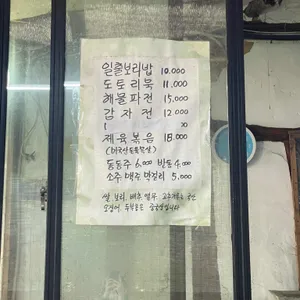 일출보리밥 10.000
도토리묵 11.000
해물파전 15.000
감자전 12.000
제육볶음 18.000
동동주 6.000 반동 4.000
소주 맥주 막걸리 5.000
쌀 보리 배추 열무 고추가루 국산